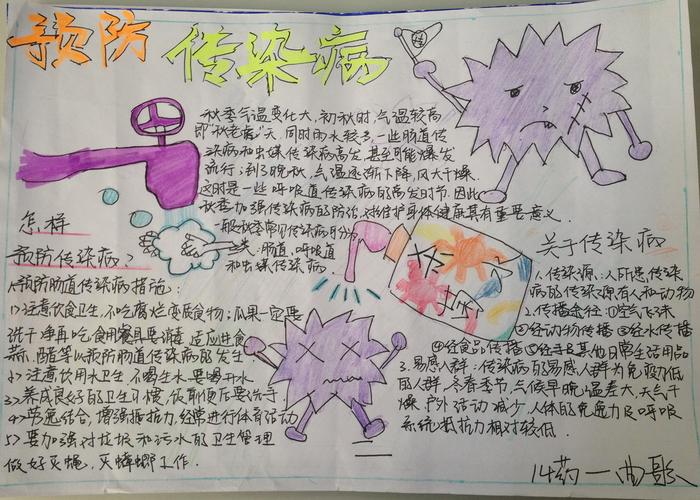 预防
传染病
秋季气温变化大，初秋时，气温较高
即"秋老虎"天，同时雨水较多，一些肠道传
染病和虫媒传染病高发，甚至可能爆发
流行；到了晚秋，气温逐渐下降，风大干燥，
这时是一些呼吸道传染病的高发时节，因此
秋季加强传染病的防治，对维护身体健康具有重要意义。
一般秋季常见传染病可分为
：肠道，呼吸道
和虫媒传染病。
怎样
预防传染病？
1、预防肠道传染病措施：
1>注意饮食卫生，不吃腐烂变质食物；瓜果一定要
洗干净再吃，食用餐具要消毒，适应进食
蒜、醋等以预防肠道传染病的发生
2>注意饮用水卫生，不喝生水，要喝开水
3>养成良好的卫生习惯，饭前便后要洗手
4>劳逸结合，增强抵抗力，经常进行体育活动
5>要加强对垃圾和污水的卫生管理
做好灭蝇，灭蟑螂工作.
关于传染病
1.传染源：人所患传染
病的传染源有人和动物
2.传播途径：①空气飞沫
②经动物传播 ③经水传播
④经食品传播 ⑤经手及其他日常生活用品
3.易感人群：传染病的易感人群为免疫力低
的人群，冬春季节，气候早晚温差大，天气干
燥，户外活动减少，人体的免疫力及呼吸
系统抵抗力相对较低.
14药一曲